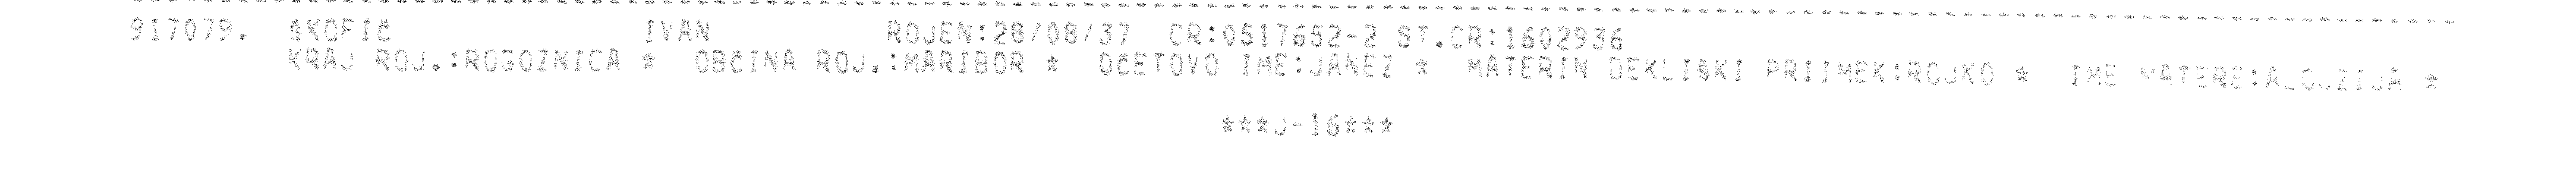 917079. SKOFIC IVAN ROJEN:28/08/37 CR:0517652-2 ST.CR:1602936
KRAJ ROJ.:ROGOZNICA * OBCINA ROJ.:MARIBOR * OCETOVO IME:JANEZ * MATERIN DEKLISKI PRIIMEK:ROJKO * IME MATERE:ALOJZIJA *
***J-16***